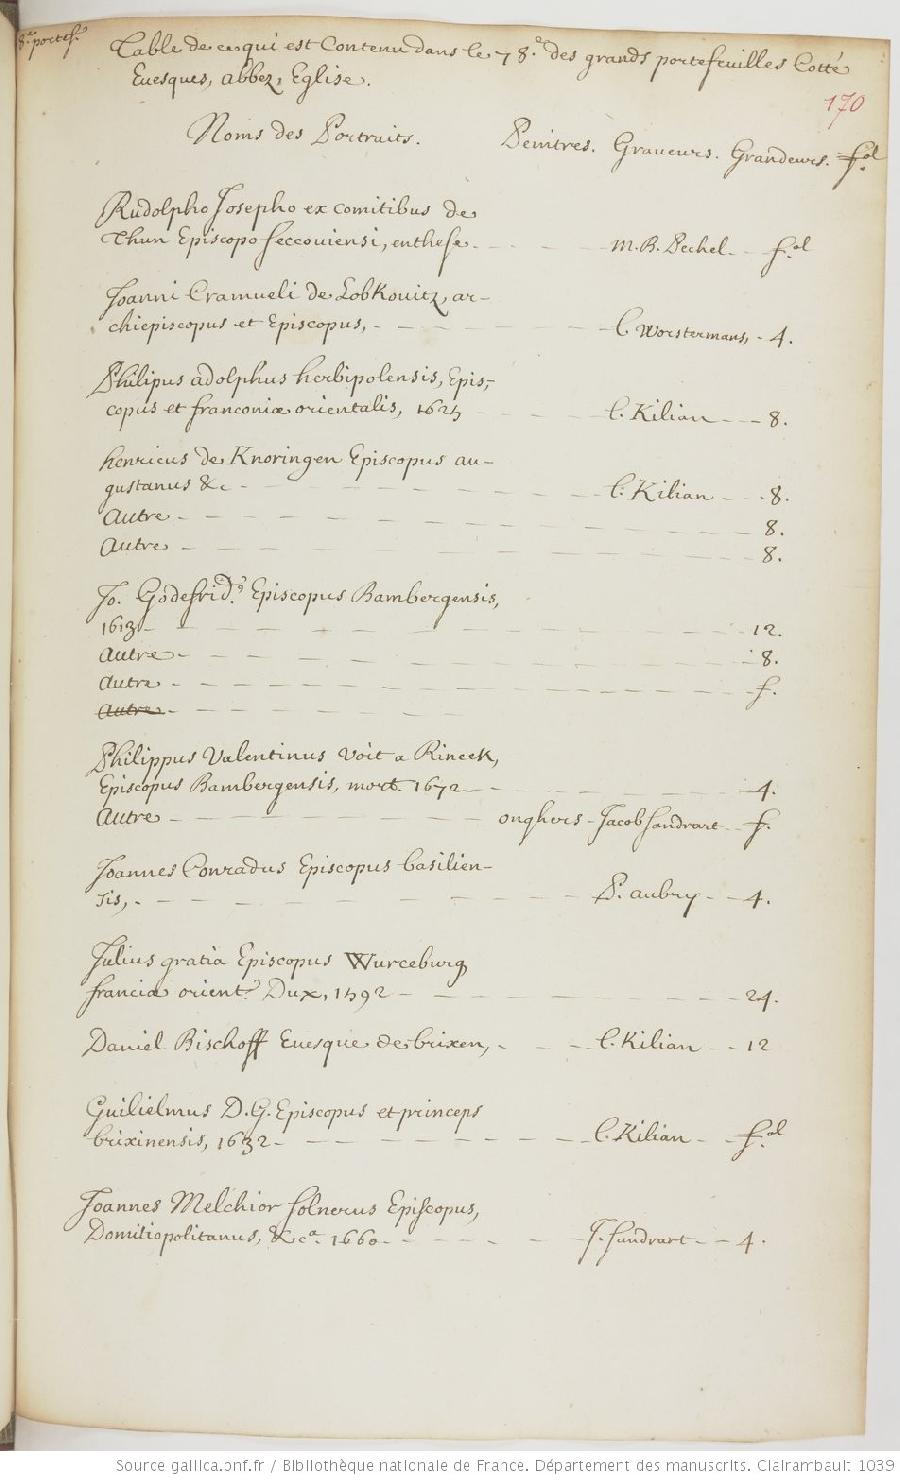 8.e portef.
Table de ce qui est Contenu dans le 78.e des grands portefeuilles Cotté
Euesques, abbez, Eglise.
170
Noms des Portraits. Peintres. Graueurs. Grandeurs. fol.
Rudolpho Josepho ex comitibus de
Thun Episcopo seccouiensi, enthese. M. B. Pechel. f.ol
Joanni Cramueli de Lobkouitz, ar-
chiepiscopus et Episcopus, C. Worstermans, 4.
Philipus adolphus herbipolensis, Epis-
copus et franconiæ orientalis, 1625 C. Kilian 8.
henricus de Knoringen Episcopus au-
gustanus &c C. Kilian 8.
Autre 8.
Autre 8.
Jo. Godefrid.9 Episcopus Bambergensis,
1613 12.
Autre 8.
Autre f.
Autre
Philippus Valentinus Voit a Rineck,
Episcopus Bambergensis, mort. 1672 4.
Autre onghers - Jacob Sandrart f.
Joannes Conradus Episcopus basilien-
sis, P. aubry 4.
Julius gratia Episcopus Wurceburg
franciæ orient. Dux, 1592 24.
Daniel Bischoff Euesque de brixen, C. Kilian 12
Guilielmus D.G. Episcopus et princeps
brixinensis, 1632 C. Kilian f.ol
Joannes Melchior solnerus Episcopus,
Domitiopolitanus, &c.a 1660 J. Sandrart 4.
Source gallica.bnf.fr / Bibliothèque nationale de France. Département des manuscrits. Clairambault 1039